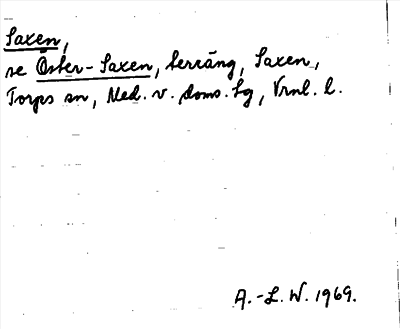 Saxen,
se Öster-Saxen, terräng, Saxen,
Torps sn, Med. v. doms. tg, Vrml. l.
A.-L. W. 1969.